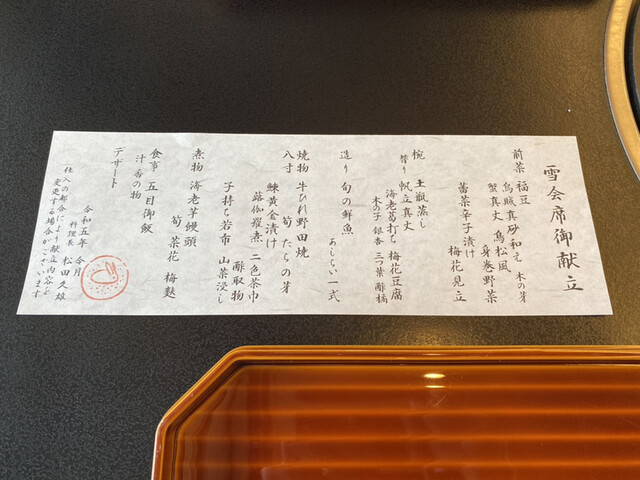 雪会席御献立
前菜 福豆
烏賊真砂和え 木の芽
蟹真丈 鳥松風 身巻野菜
蕾菜辛子漬け 梅花見立
椀 土瓶蒸し
替り 帆立真丈
海老葛打ち 梅花豆腐
木の子 銀杏 三つ葉 酢橘
造り 旬の鮮魚
あしらい一式
焼物 牛ひれ野田焼
筍 たらの芽
八寸 鰊黄金漬け 酢取物
蕗伽羅煮 二色茶巾
子持ち若布 山菜浸し
煮物 海老芋饅頭
筍 菜花 梅麩
食事 五目御飯
汁 香の物
デザート
令和五年 今月
料理長 松田久雄
仕入の都合により献立内容を
変更する場合がございます